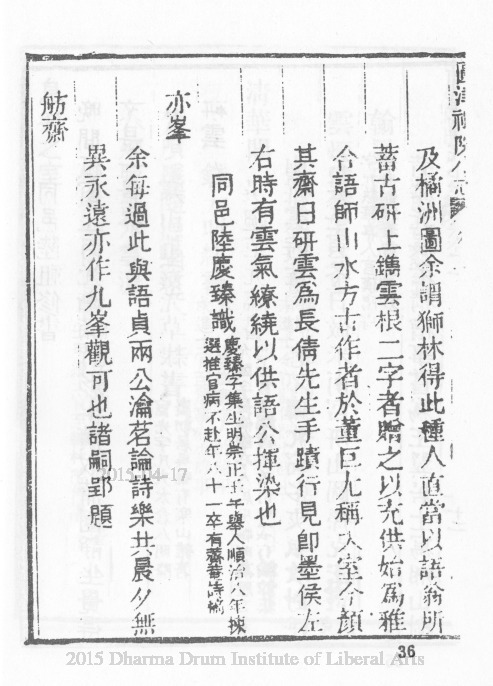 圓津禪院小志
及橘洲圖余謂獅林得此種人直當以語翁所
蓄古研上鐫雲根二字者贈之以充供始為雅
合語師山水方古作者於董巨尤稱入室今顏
其齋曰研雲為長倩先生手蹟行見即墨侯左
右時有雲氣繚繞以供語公揮染也
同邑陸慶臻識
慶臻字集生明崇正壬午舉人順治八年揀
選推官病不赴年八十一卒有
亦峯
余每過此與語貞兩公瀹茗論詩樂共晨夕無
異永遠亦作九峯觀可也諸嗣郢題
舫齋
2015-04-17
36
2015 Dharma Drum Institute of Liberal Arts